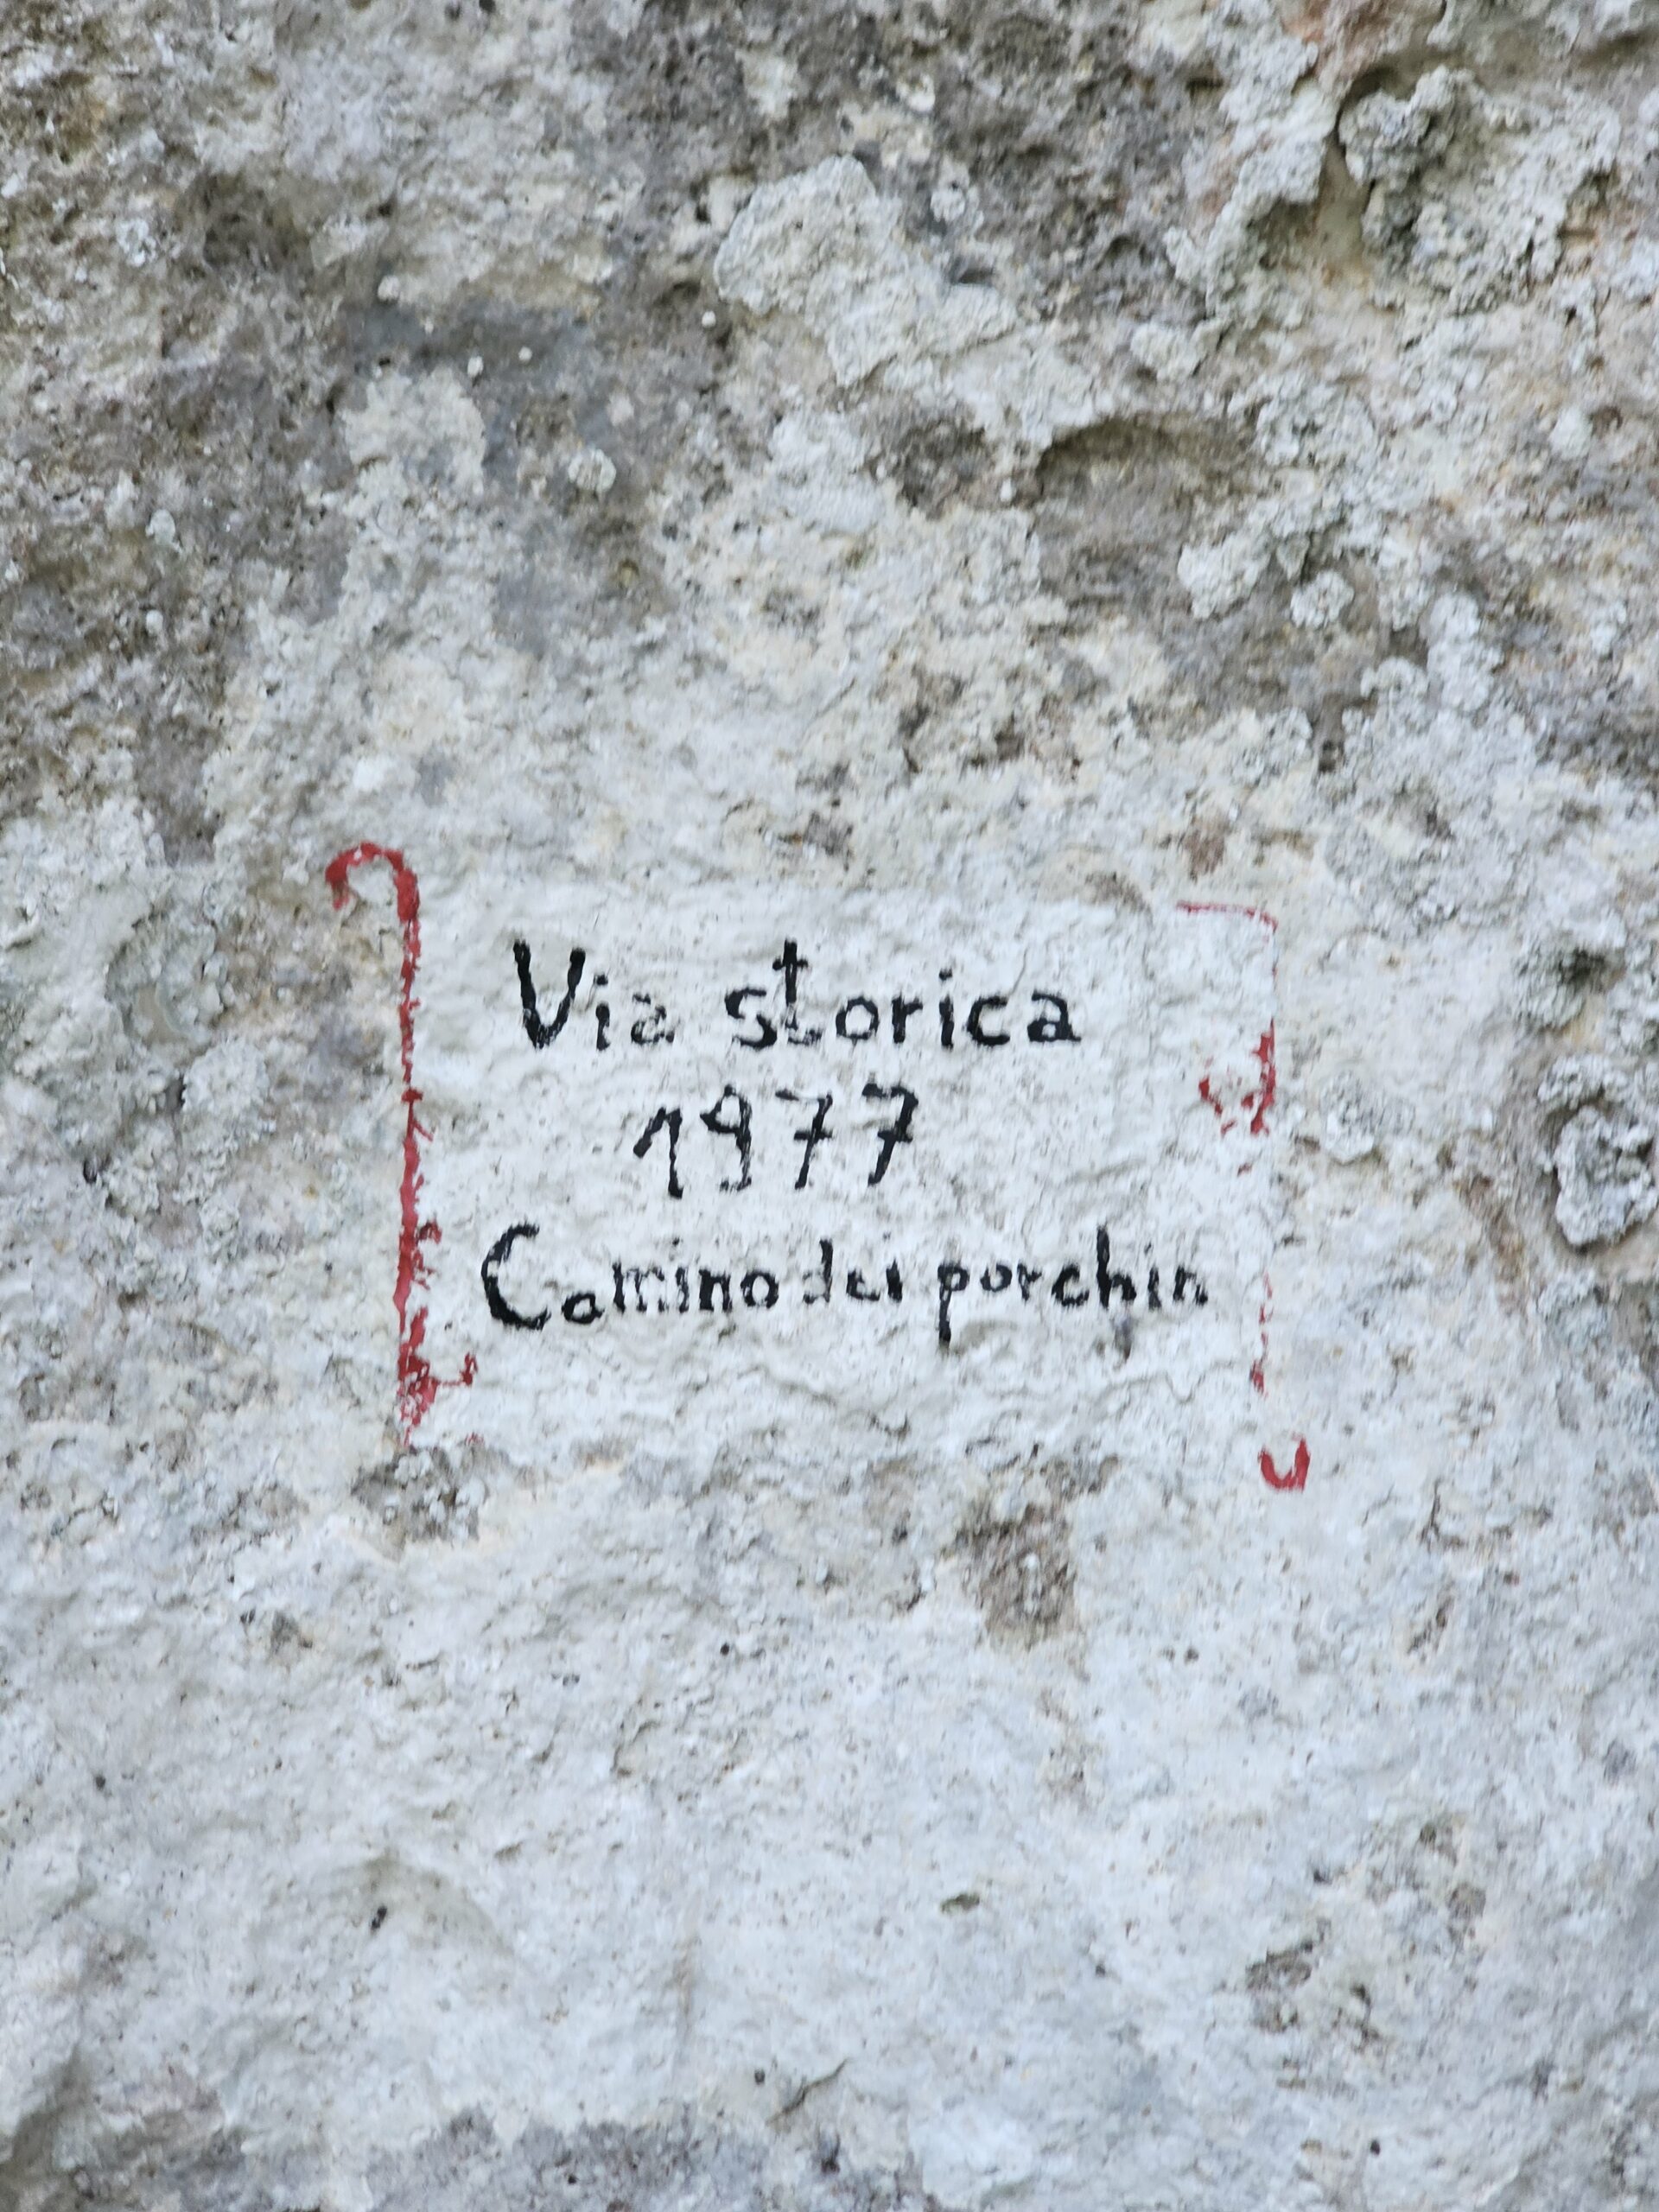 Via storica
1977
Camino dei porchin